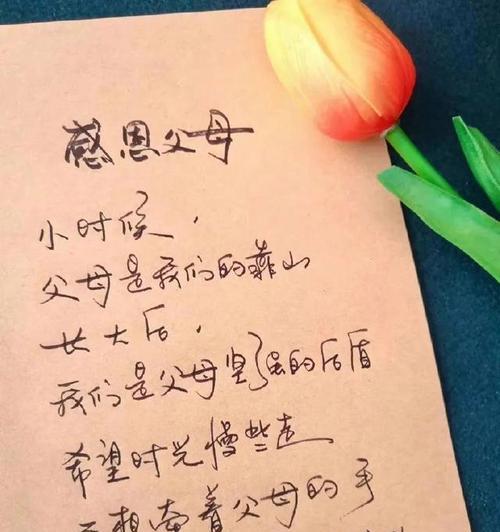 感恩父母
小时候，
父母是我们的靠山
长大后，
我们是父母坚强的后盾
希望时光慢些走
想牵着父母的手